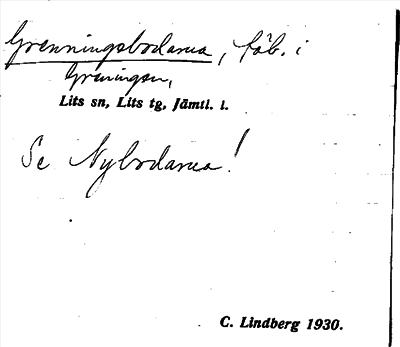 Grenningsbodarna, fäb. i
Greningen,
Lits sn, Lits tg, Jämtl. l.
Se Nybodarna!
C. Lindberg 1930.